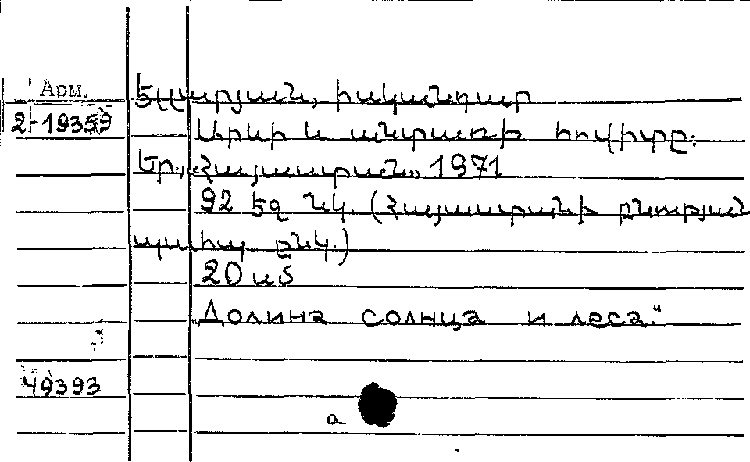 Арм.
2-19359
Եղլարյան, Իսկանդար
Արևի և անտառի հովիտը.
Եր., «Հայաստան», 1971
92 էջ նկ. (Հայաստանի բնության
պահպ. ընկ.)
20 սմ
Долина солнца и леса."
49393
а